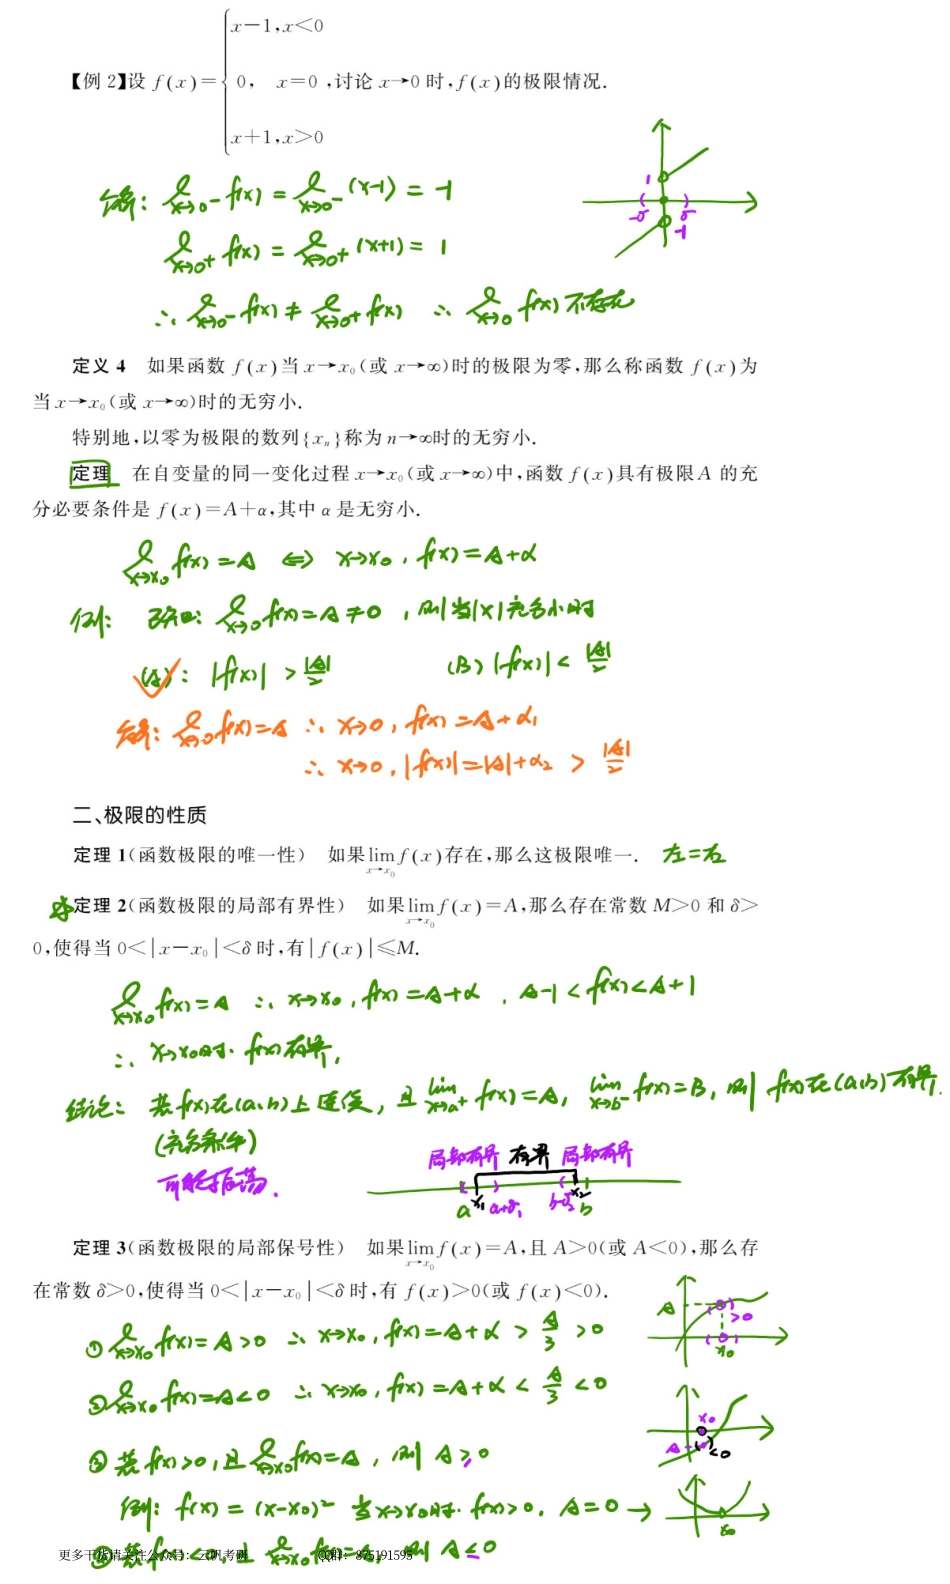 x-1,x<0
【例 2】设 f(x)= 0, x=0 ,讨论 x→0 时,f(x)的极限情况.
x+1,x>0
解: lim x→0- f(x) = lim x→0- (x-1) = -1
lim x→0+ f(x) = lim x→0+ (x+1) = 1
∴ lim x→0- f(x) ≠ lim x→0+ f(x) ∴ lim x→0 f(x) 不存在
1 -δ δ -1
定义 4 如果函数 f(x)当 x→x₀(或 x→∞)时的极限为零,那么称函数 f(x)为
当 x→x₀(或 x→∞)时的无穷小.
特别地,以零为极限的数列{xₙ}称为 n→∞时的无穷小.
定理 在自变量的同一变化过程 x→x₀(或 x→∞)中,函数 f(x)具有极限 A 的充
分必要条件是 f(x)=A+α,其中 α 是无穷小.
lim x→x₀ f(x) = A ⇔ x→x₀, f(x) = A+α
例: 已知: lim x→0 f(x) = A ≠ 0, 则当|x|充分小时
(A): |f(x)| > |A|/2 (B) |f(x)| < |A|/2
解: lim x→0 f(x) = A ∴ x→0, f(x) = A+α₁
∴ x→0, |f(x)| = |A|+α₂ > |A|/2
二、极限的性质
定理 1(函数极限的唯一性) 如果 lim x→x₀ f(x)存在,那么这极限唯一. 左=右
定理 2(函数极限的局部有界性) 如果 lim x→x₀ f(x)=A,那么存在常数 M>0 和 δ>
0,使得当 0<|x-x₀|<δ 时,有|f(x)|≤M.
lim x→x₀ f(x) = A ∴ x→x₀, f(x) = A+α, A-1 < f(x) < A+1
∴ x→x₀时. f(x)有界.
结论: 若f(x)在(a,b)上连续, 且 lim x→a+ f(x) = A, lim x→b- f(x) = B, 则 f(x)在(a,b)有界.
(充分条件)
可能振荡.
局部有界 有界 局部有界
a x₁ a+δ₁ b-δ₂ x₂ b
定理 3(函数极限的局部保号性) 如果 lim x→x₀ f(x)=A,且 A>0(或 A<0),那么存
在常数 δ>0,使得当 0<|x-x₀|<δ 时,有 f(x)>0(或 f(x)<0).
① lim x→x₀ f(x) = A > 0 ∴ x→x₀, f(x) = A+α > A/3 > 0
A >0 x₀
② lim x→x₀ f(x) = A < 0 ∴ x→x₀, f(x) = A+α < A/3 < 0
x₀ A <0
③ 若 f(x)>0, 且 lim x→x₀ f(x) = A, 则 A≥0
例: f(x) = (x-x₀)² 当x→x₀时. f(x)>0, A=0 →
x₀
更多干货请关注公众号:云帆考研 QQ群: 875191595
则 A≤0